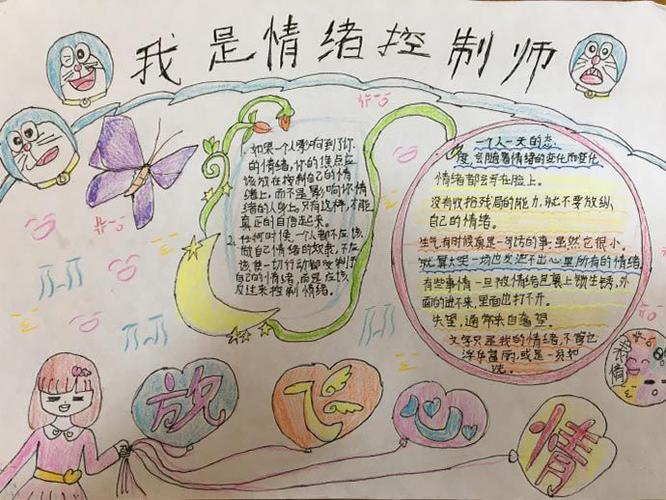 我是情绪控制师
1. 如果一个人影响到了你
的情绪,你的焦点应
该放在控制自己的情
绪上,而不是影响你情
绪的人身上,只有这样,才能
真正的自信起来。
2. 任何时候,一个人都不应该
做自己情绪的奴隶,不应
该使一切行动都受制于
自己的情绪,而是应该
反过来控制情绪。
一个人一天的态
度,会随着情绪的变化而变化
情绪都会写在脸上。
没有收拾残局的能力,就不要放纵
自己的情绪。
生气,有时候真是一可访的事,虽然它很小。
就算大哭一场也发泄不出心里所有的情绪
有些事情一旦被情绪
外
面的进不来,里面也打不开。
失望,通常来自
望
文字只是我的情绪,不管它
或是一
放
飞
心
情
表情